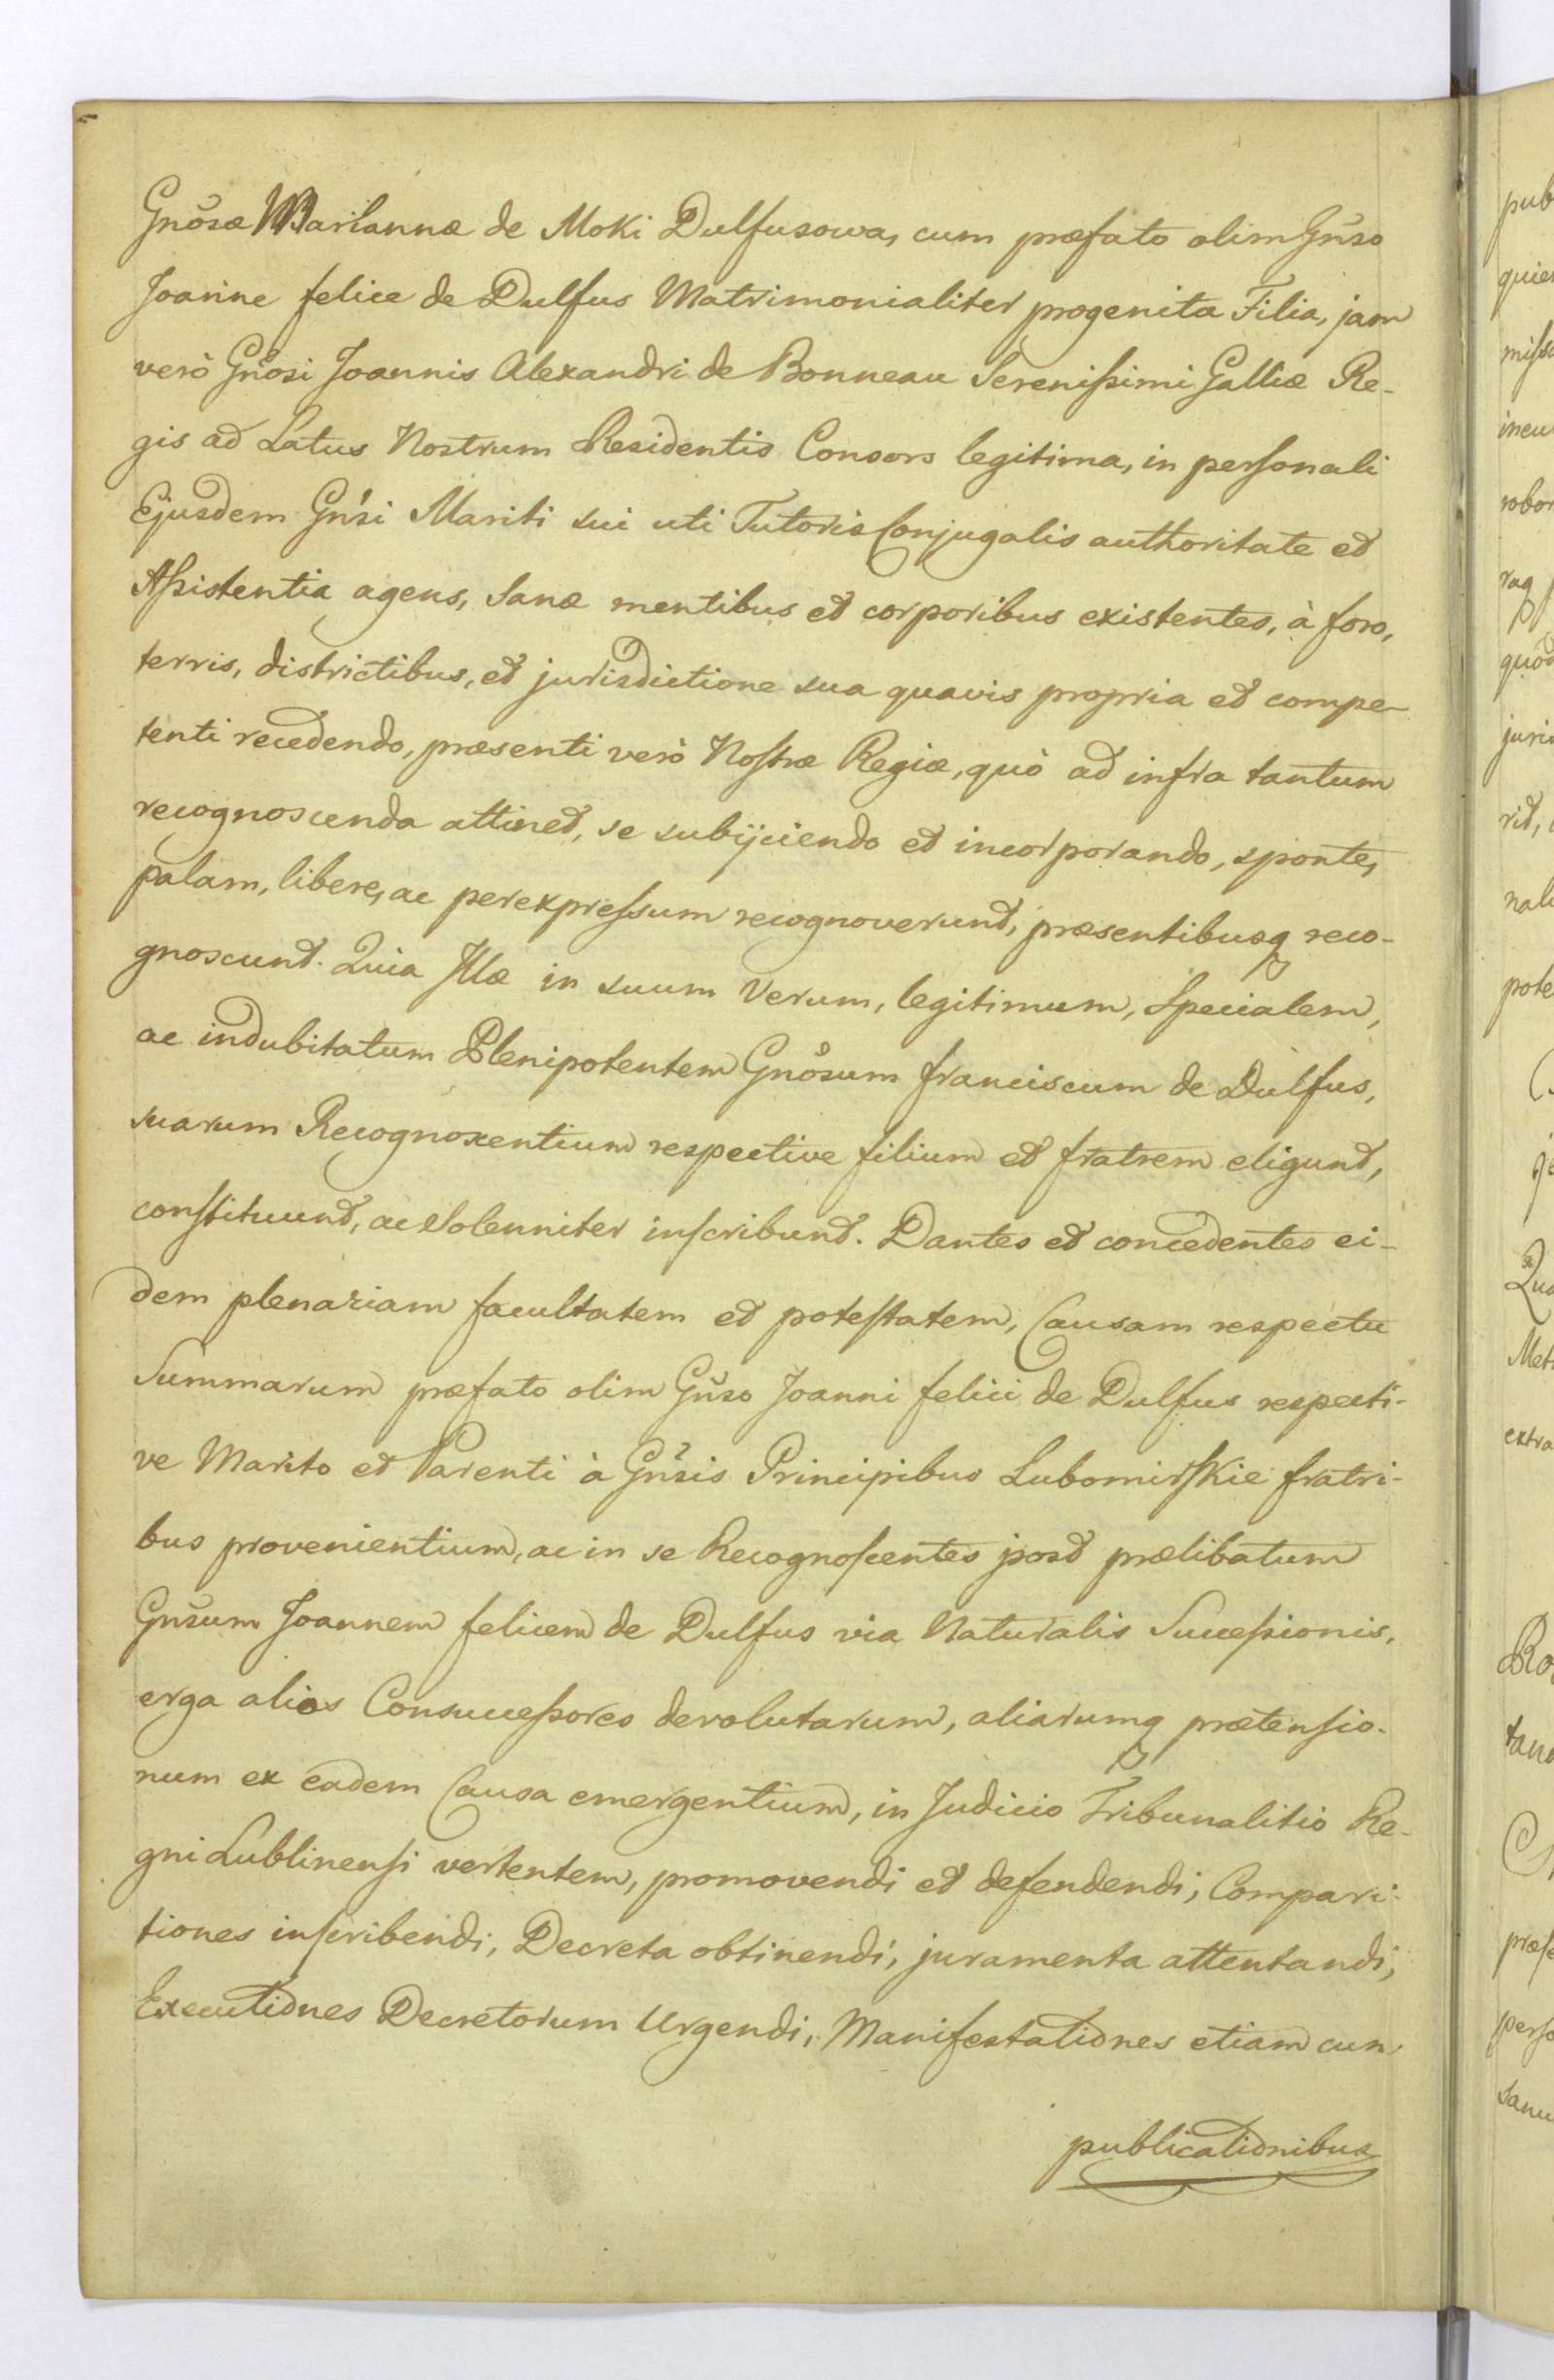 Gnosæ Mariannæ de Moki Dulfusowa, cum præfato olim Gnso
Joanne felice de Dulfus Matrimonialiter progenita Filia, jam
verò Gnosi Joannis Alexandri de Bonneau Serenissimi Galliæ Re-
gis ad Latus Nostrum Residentis Consors legitima, in personali
Ejusdem Gnsi Mariti sui uti Tutoris Conjugalis authoritate et
Assistentia agens, Sanæ mentibus et corporibus existentes, à foro,
terris, districtibus, et jurisdictione sua quavis propria et compe-
tenti recedendo, præsenti verò Nostræ Regiæ, quò ad infra tantum
recognoscenda attinet, se subijciendo et incorporando, sponte,
palam, libere, ac per expressum recognoverunt, præsentibusq reco-
gnoscunt. Quia Illæ in suum Verum, legitimum, Specialem,
ac indubitatum Plenipotentem Gnosum franciscum de Dulfus,
suarum Recognoxentium respective filium et fratrem eligunt,
constituunt, ac Solenniter inscribunt. Dantes et concedentes ei-
dem plenariam facultatem et potestatem, Causam respectu
Summarum præfato olim Gnso Joanni felici de Dulfus respecti-
ve Marito et Parenti à Gnsis Principibus Lubomirskie fratri-
bus provenientium, ac in se Recognoscentes post prælibatum
Gnsum Joannem felicem de Dulfus via Naturalis Successionis,
erga alios Consuccessores devolutarum, aliarumq prætensio-
num ex eadem Causa emergentium, in Judicio Tribunalitio Re-
gni Lublinensi vertentem, promovendi et defendendi, Compari-
tiones inscribendi, Decreta obtinendi, juramenta attentandi,
Executiones Decretorum Urgendi, Manifestationes etiam cun
publicationibus